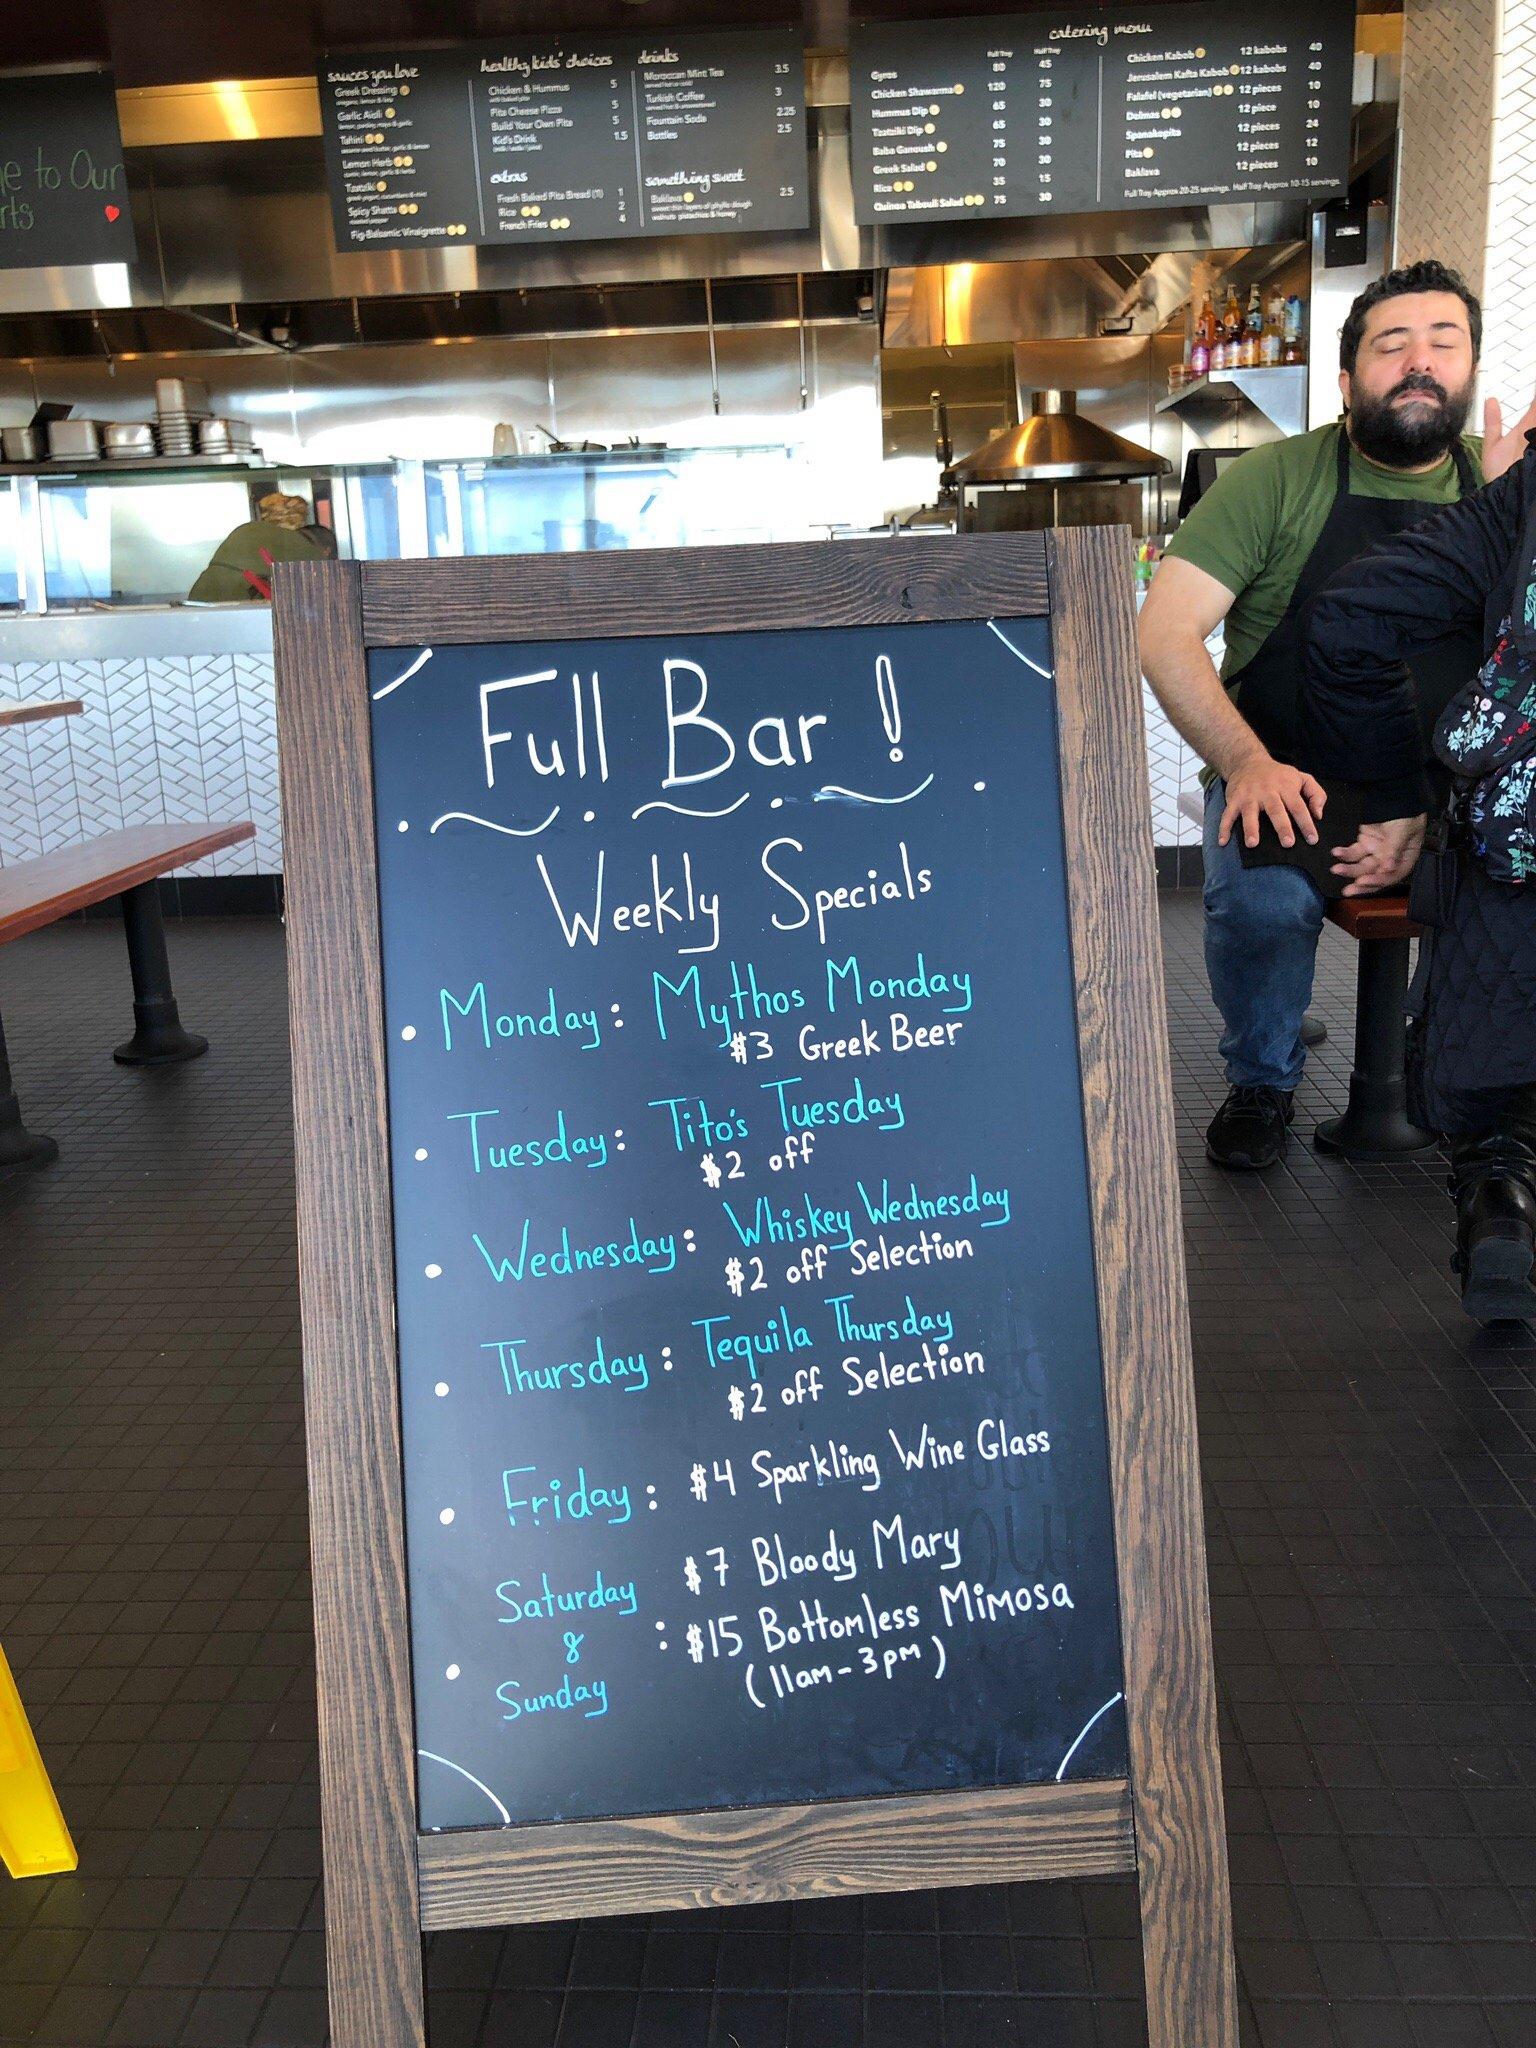 e to Our
rts
sauces you love
Greek Dressing
Garlic Aioli
Tahini
Lemon Herb
Tzatziki
Spicy Shatta
Fig-Balsamic Vinaigrette
healthy kids' choices
Chicken & Hummus 5
Pita Cheese Pizza 5
Build Your Own Pita 5
Kid's Drink 1.5
extras
Fresh Baked Pita Bread (1) 1
Rice 2
French Fries 4
drinks
Moroccan Mint Tea 3.5
Turkish Coffee 3
Fountain Soda 2.25
Bottles 2.5
something sweet
Baklava 2.5
sweet thin layers of phyllo dough
walnuts pistachios & honey
catering menu
Full Tray Half Tray
Gyros 80 45
Chicken Shawarma 120 75
Hummus Dip 65 30
Tzatziki Dip 65 30
Baba Ganoush 75 30
Greek Salad 70 30
Rice 35 15
Quinoa Tabouli Salad 75 30
Chicken Kabob 12 kabobs 40
Jerusalem Kafta Kabob 12 kabobs 40
Falafel (vegetarian) 12 pieces 10
Dolmas 12 piece 10
Spanakopita 12 pieces 24
Pita 12 pieces 12
Baklava 12 pieces 10
Full Tray Approx 20-25 servings. Half Tray Approx 10-15 servings.
Full Bar!
Weekly Specials
• Monday: Mythos Monday
$3 Greek Beer
• Tuesday: Tito's Tuesday
$2 off
• Wednesday: Whiskey Wednesday
$2 off Selection
• Thursday: Tequila Thursday
$2 off Selection
• Friday: $4 Sparkling Wine Glass
Saturday $7 Bloody Mary
• & : $15 Bottomless Mimosa
Sunday (11am-3pm)